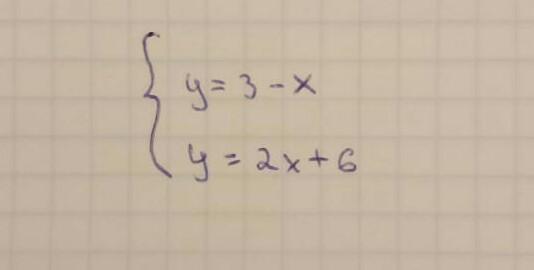 y = 3 - x
y = 2x + 6